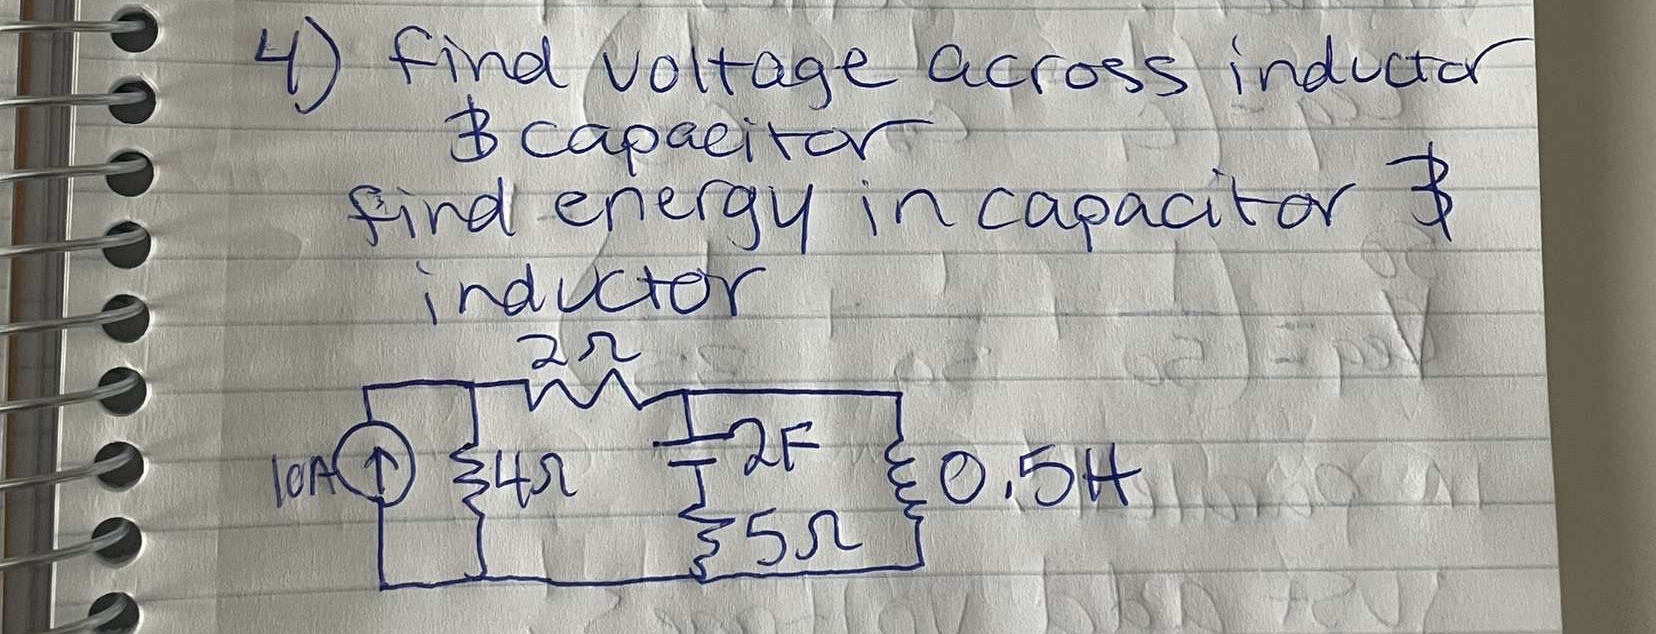 4) find voltage across inductor
& capacitor
find energy in capacitor &
inductor
2Ω
10A 4Ω 2F 0.5H
5Ω